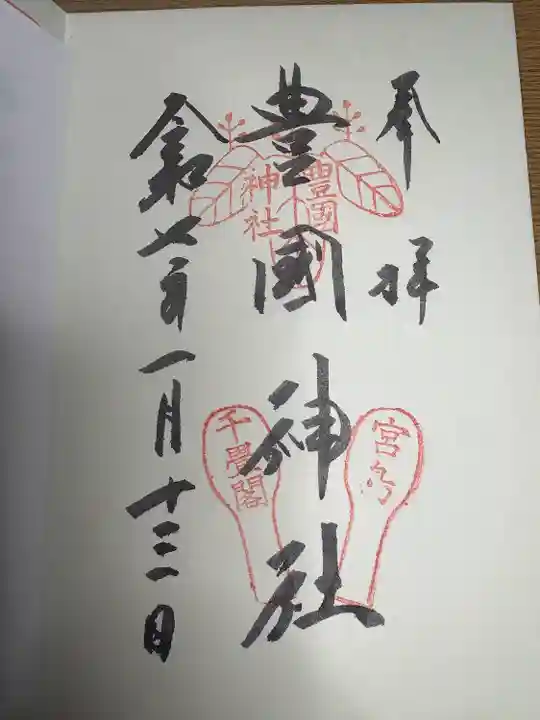 奉拝
豊國神社
令和七年一月十三日
豊國
神社
宮島
千畳閣